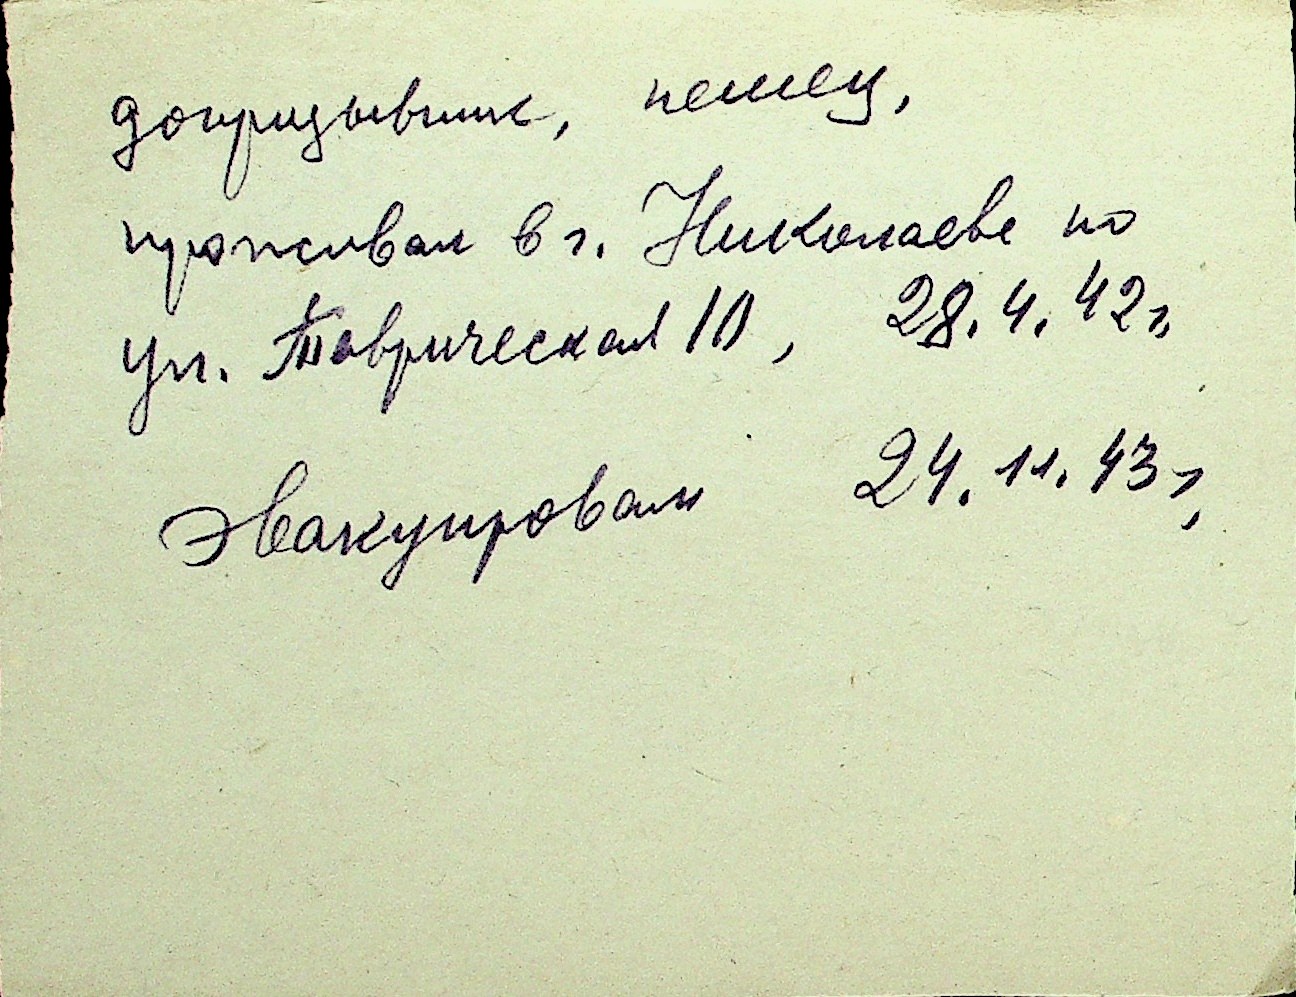 допризывник, немец,
проживал в г. Николаеве по
ул. Таврическая 10, 28.4.42 г.
Эвакуировали 24.11.43 г,